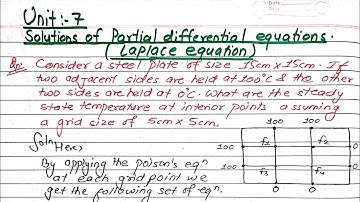 Unit :- 7
Solutions of Partial differential equations.
(Laplace equation)
Qn: Consider a steel plate of size 15cm x 15cm. If
two adjacent sides are held at 100°C & the other
two sides are held at 0°C. What are the steady
state temperature at interior points assuming
a grid size of 5cm x 5cm.
Soln
Here,
By applying the poison's eqn
at each grid point we
get the following set of eqn.
100 100
100 f1 f2 0
100 f3 f4 0
0 0